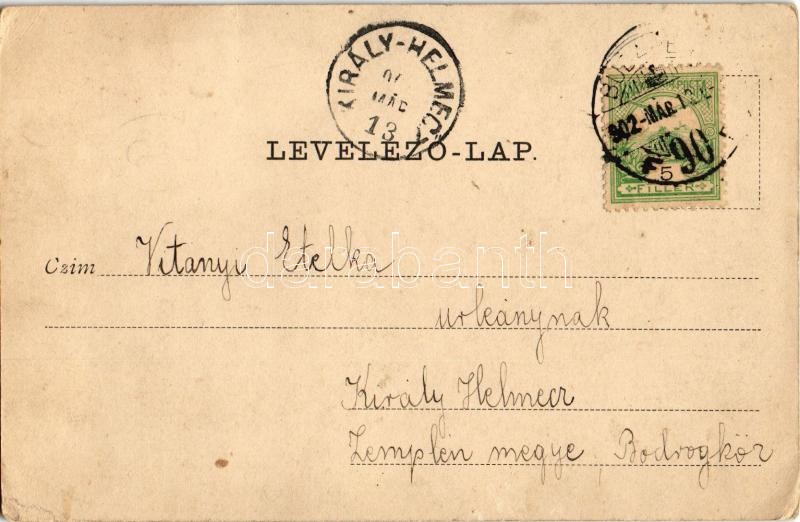 KIRÁLY-HELMECZ
MÁR
13
902-MÁR.1
90
5
FILLÉR
LEVELEZŐ-LAP.
Czim Vitanyi Etelka
urleánynak
Király Helmecz
Zemplén megye, Bodrogköz
darabanth